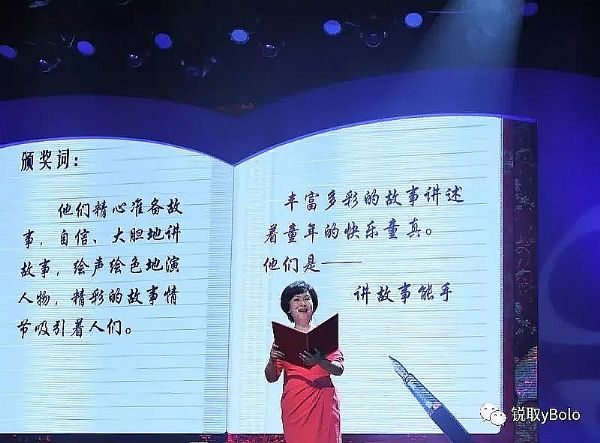 颁奖词：
他们精心准备故
事，自信、大胆地讲
故事，绘声绘色地演
人物，精彩的故事情
节吸引着人们。
丰富多彩的故事讲述
着童年的快乐童真。
他们是——
讲故事能手
锐取yBolo